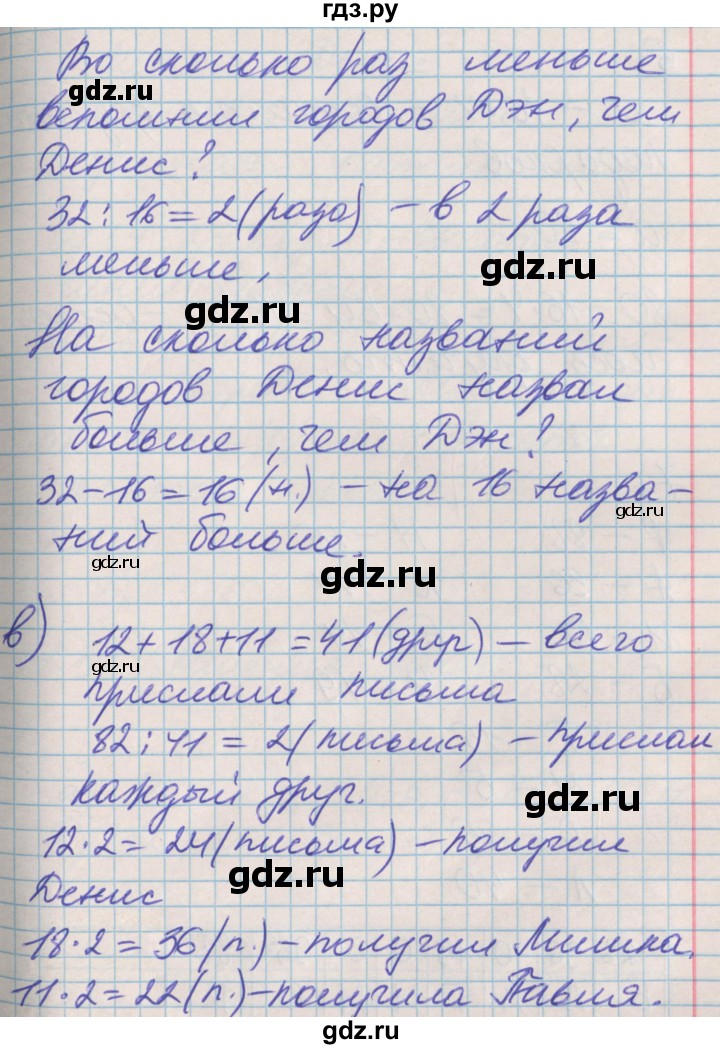 гдз.ру
Во сколько раз меньше
gdz.ru
вспомнил городов Дэн, чем
gdz.ru
Денис?
32:16=2(раза) – в 2 раза
gdz.ru
меньше,
gdz.ru
На сколько названий
городов Денис назвал
gdz.ru
больше, чем Дэн?
32-16=16(н.) – на 16 назва-
gdz.ru
ний больше.
gdz.ru
gdz.ru
в) 12+18+11=41(друг) – всего
gdz.ru
прислали письма
gdz.ru
82:41=2(письма) – прислал
каждый друг.
gdz.ru
12·2=24(письма) – получил
gdz.ru
Денис
18·2=36(п.) – получил Мишка.
gdz.ru
11·2=22(п.) – получила Павля.
gdz.ru
gdz.ru